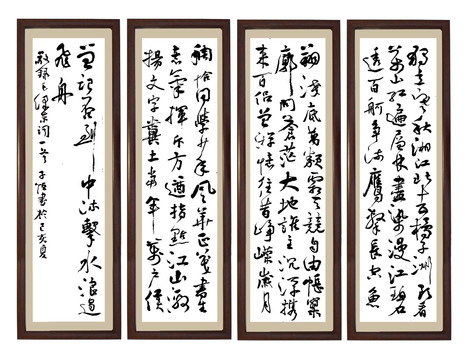 獨立寒秋湘江北去橘子洲頭看
萬山紅遍層林盡染漫江碧
透百舸爭流鷹擊長空魚
翔淺底萬類霜天競自由悵寥
廓問蒼茫大地誰主沉浮攜
來百侶曾遊憶往昔崢嶸歲月
稠恰同學少年風華正茂書生
意氣揮斥方遒指點江山激
揚文字糞土當年萬户侯
曾記否到中流擊水浪遏
飛舟
毛澤東詞一首 書於己亥夏